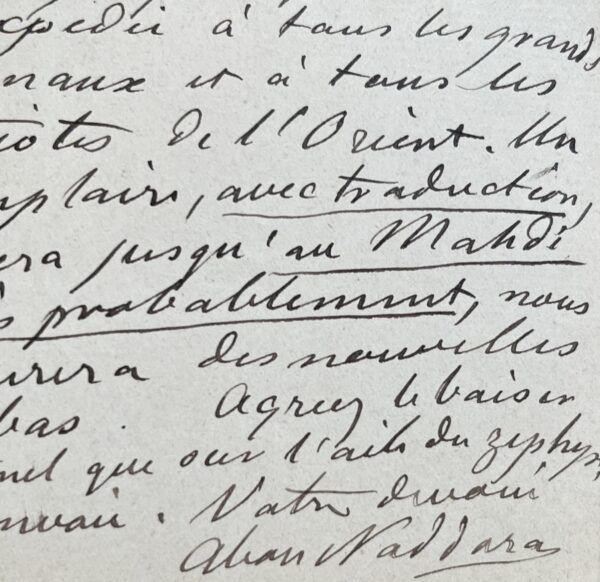 xpédié à tous les grands
rnaux et à tous les
iotes de l'Orient. Un
mplaire, avec traduction,
era jusqu'au Mahdi
s probablement, nous
urera des nouvelles
bas. Agréez le baiser
nel que sur l'aile du zéphyr,
nvoie. Votre dévoué
Abou Naddara